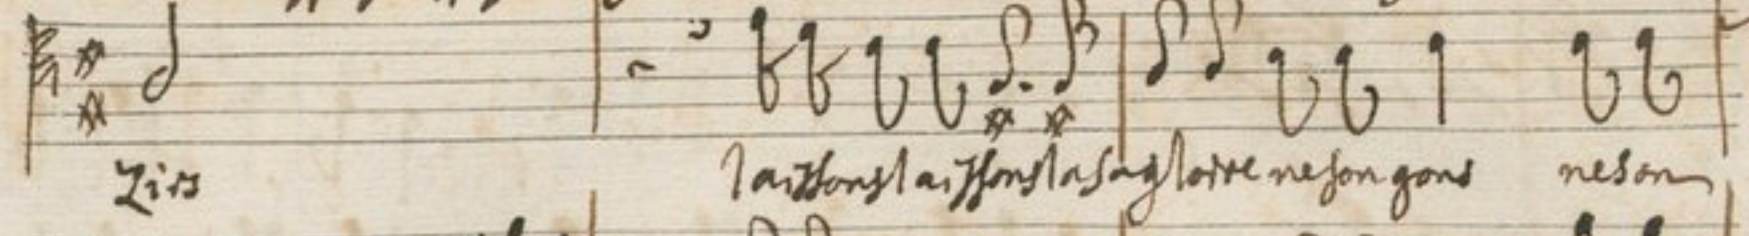 zirs laissons laissons la sa gloire ne songons ne son